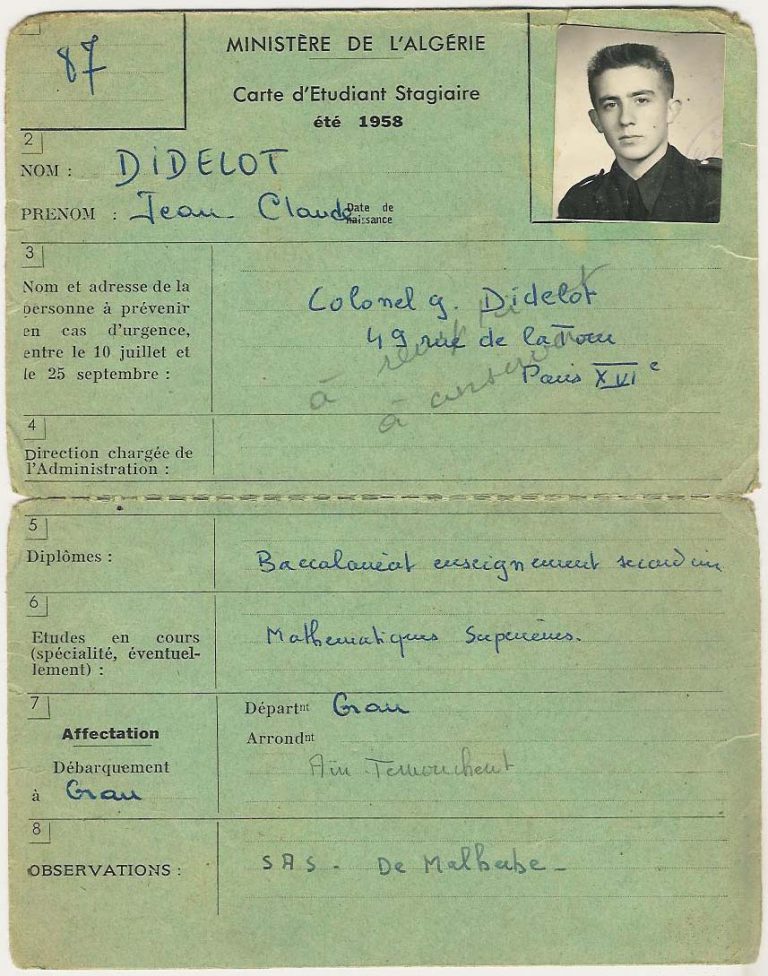 87
MINISTÈRE DE L'ALGÉRIE
Carte d'Etudiant Stagiaire
été 1958
2
NOM : DIDELOT
PRENOM : Jean Claude Date de naissance
3
Nom et adresse de la
personne à prévenir
en cas d'urgence,
entre le 10 juillet et
le 25 septembre :
Colonel g. Didelot
49 rue de la Tour
Paris XVIe
à
à conserver
4
Direction chargée de
l'Administration :
5
Diplômes :
Baccalauréat enseignement secondaire
6
Etudes en cours
(spécialité, éventuel-
lement) :
Mathématiques Supérieures.
7
Affectation
Débarquement
à Oran
Départnt Oran
Arrondnt
Aïn Temouchent
8
OBSERVATIONS :
SAS - De Malherbe -